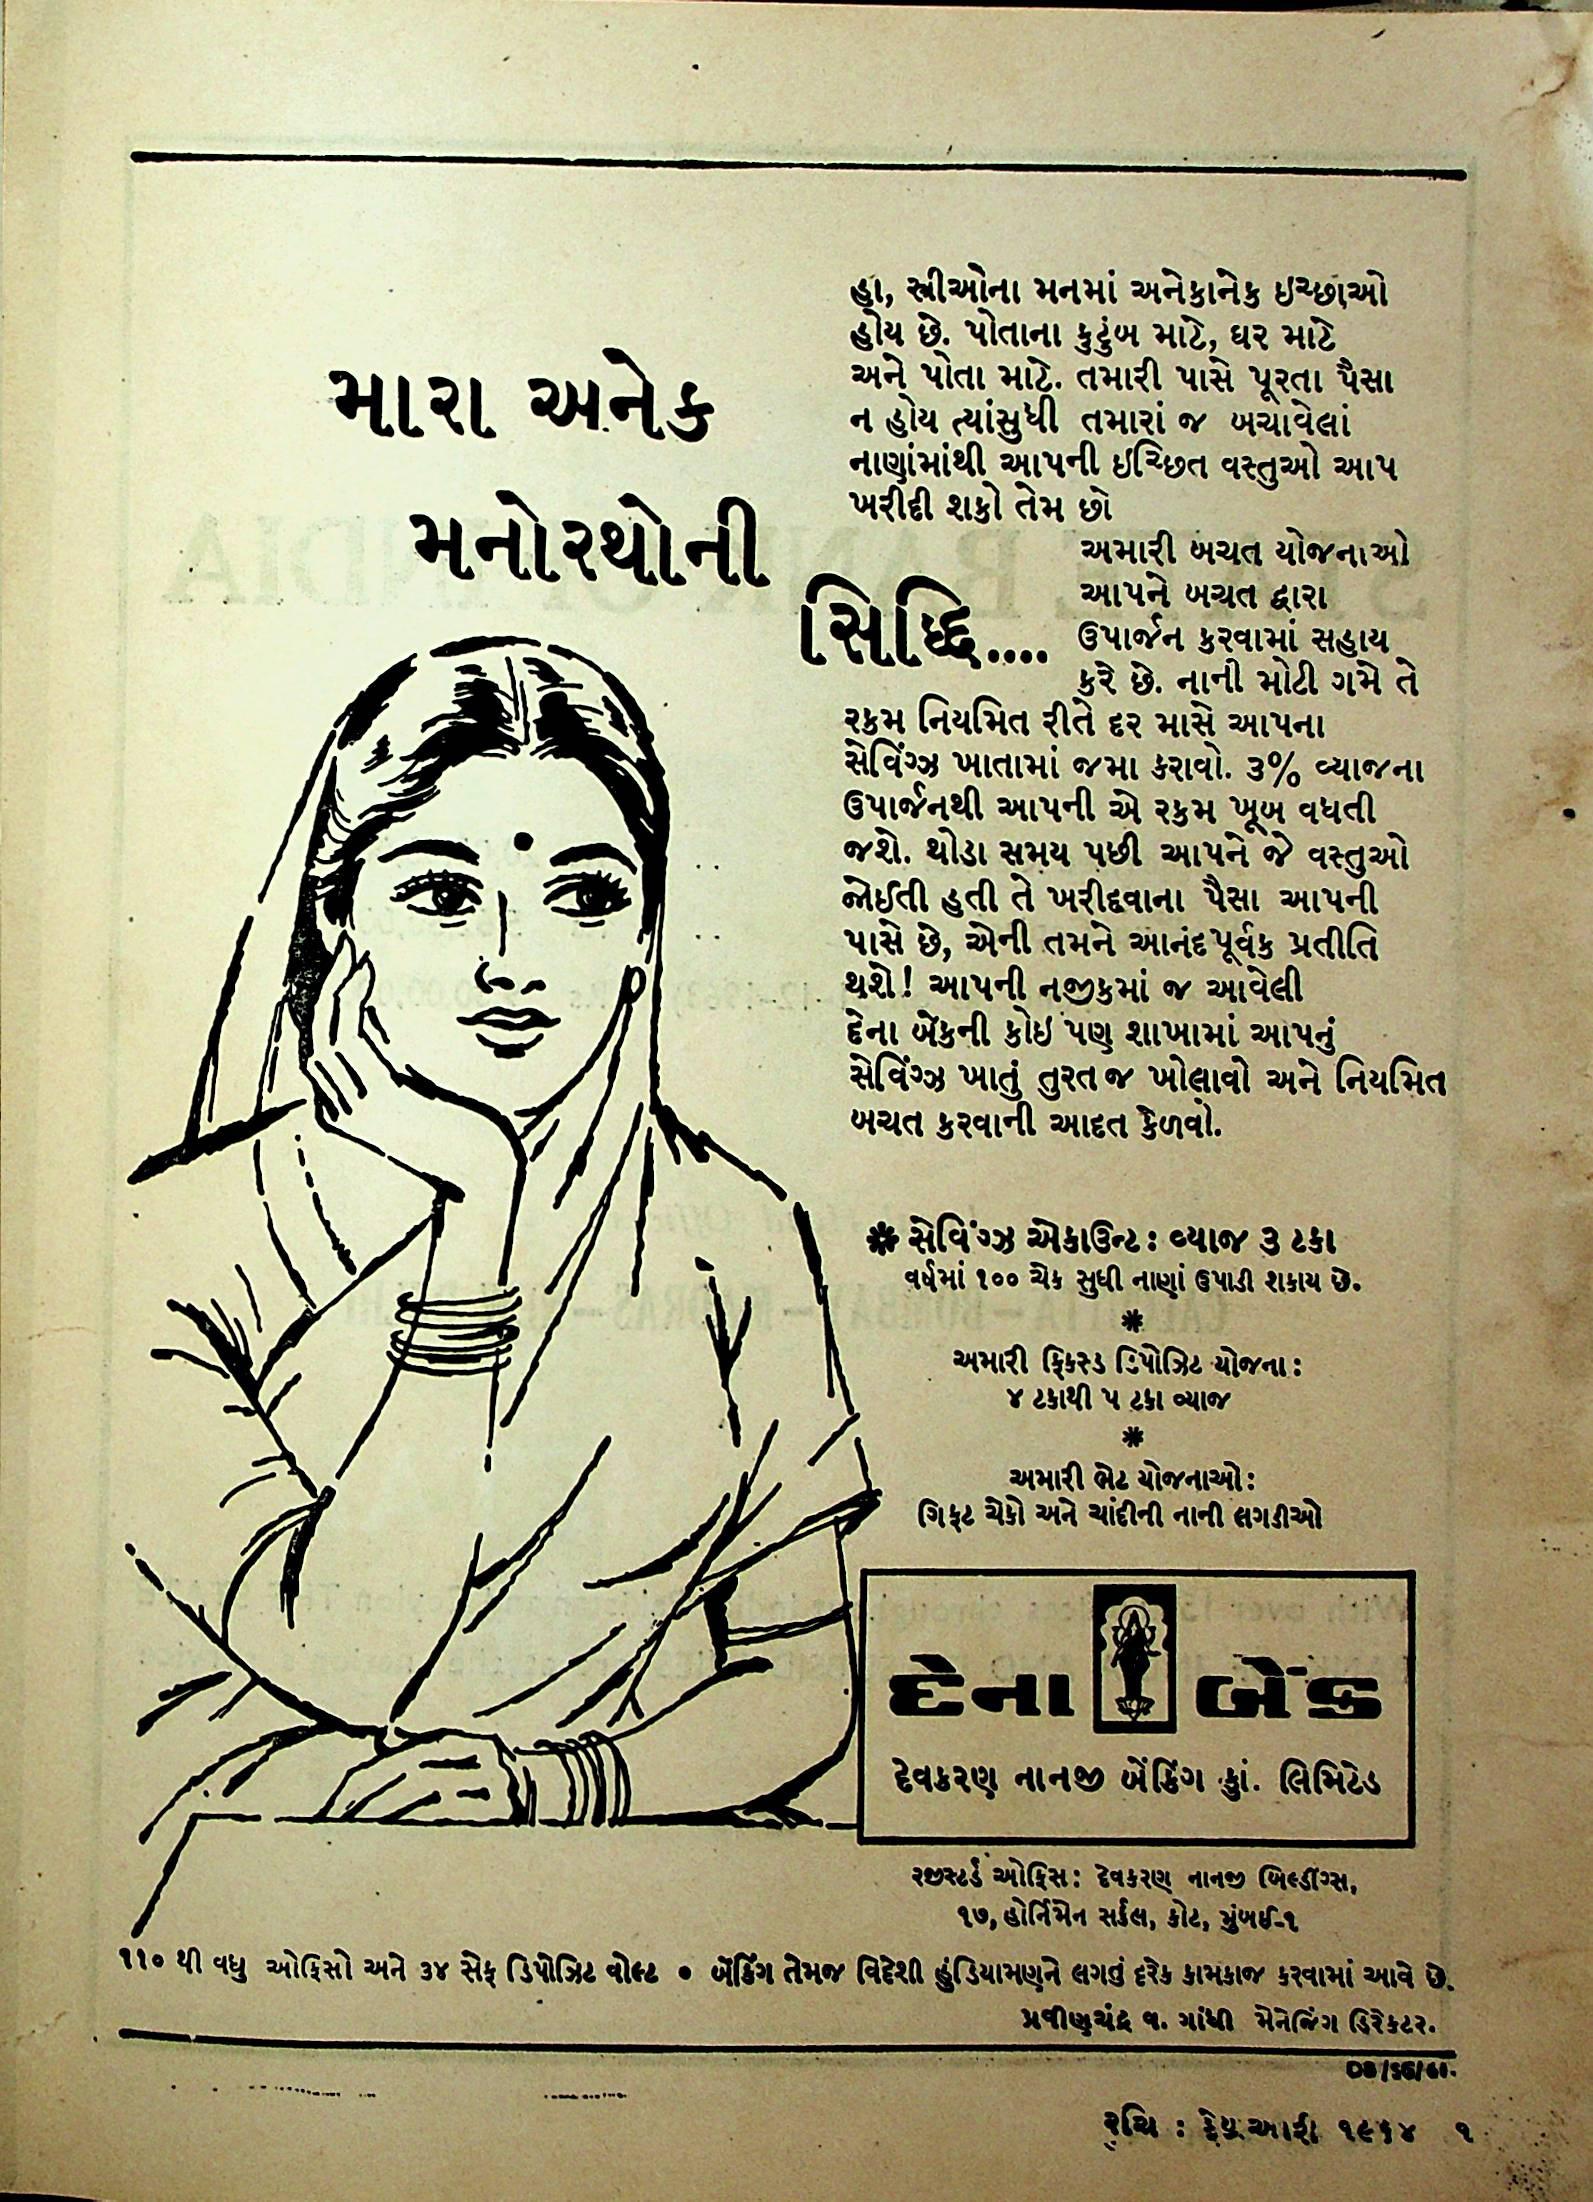 મારા અનેક
મનોરથોની
સિધ્ધિ....
હા, સ્ત્રીઓના મનમાં અનેકાનેક ઇચ્છાઓ
હોય છે. પોતાના કુટુંબ માટે, ઘર માટે
અને પોતા માટે. તમારી પાસે પૂરતા પૈસા
ન હોય ત્યાંસુધી તમારાં જ બચાવેલાં
નાણાંમાંથી આપની ઇચ્છિત વસ્તુઓ આપ
ખરીદી શકો તેમ છો
અમારી બચત યોજનાઓ
આપને બચત દ્વારા
ઉપાર્જન કરવામાં સહાય
કરે છે. નાની મોટી ગમે તે
રકમ નિયમિત રીતે દર માસે આપના
સેવિંગ્ઝ ખાતામાં જમા કરાવો. ૩% વ્યાજના
ઉપાર્જનથી આપની એ રકમ ખૂબ વધતી
જશે. થોડા સમય પછી આપને જે વસ્તુઓ
જોઈતી હતી તે ખરીદવાના પૈસા આપની
પાસે છે, એની તમને આનંદપૂર્વક પ્રતીતિ
થશે! આપની નજીકમાં જ આવેલી
દેના બેંકની કોઇ પણ શાખામાં આપનું
સેવિંગ્ઝ ખાતું તુરત જ ખોલાવો અને નિયમિત
બચત કરવાની આદત કેળવો.
* સેવિંગ્ઝ એકાઉન્ટ: વ્યાજ ૩ ટકા
વર્ષમાં ૧૦૦ ચેક સુધી નાણાં ઉપાડી શકાય છે.
*
અમારી ફિક્સ્ડ ડિપોઝિટ યોજના:
૪ ટકાથી ૫ ટકા વ્યાજ
*
અમારી ભેટ યોજનાઓ:
ગિફ્ટ ચેકો અને ચાંદીની નાની લગડીઓ
દેના બેંક
દેવકરણ નાનજી બેંકિંગ કુાં. લિમિટેડ
રજીસ્ટર્ડ ઓફિસ: દેવકરણ નાનજી બિલ્ડીંગ્સ,
૧૭, હોર્નિમેન સર્કલ, કોટ, મુંબઈ-૧
૧૧૦ થી વધુ ઓફિસો અને ૩૪ સેફ ડિપોઝિટ વોલ્ટ • બેંકિંગ તેમજ વિદેશી હુંડિયામણને લગતું દરેક કામકાજ કરવામાં આવે છે.
પ્રવીણચંદ્ર વ. ગાંધી મેનેજિંગ ડિરેક્ટર.
રુચિ : ફેબ્રુઆરી ૧૯૬૪ ૧